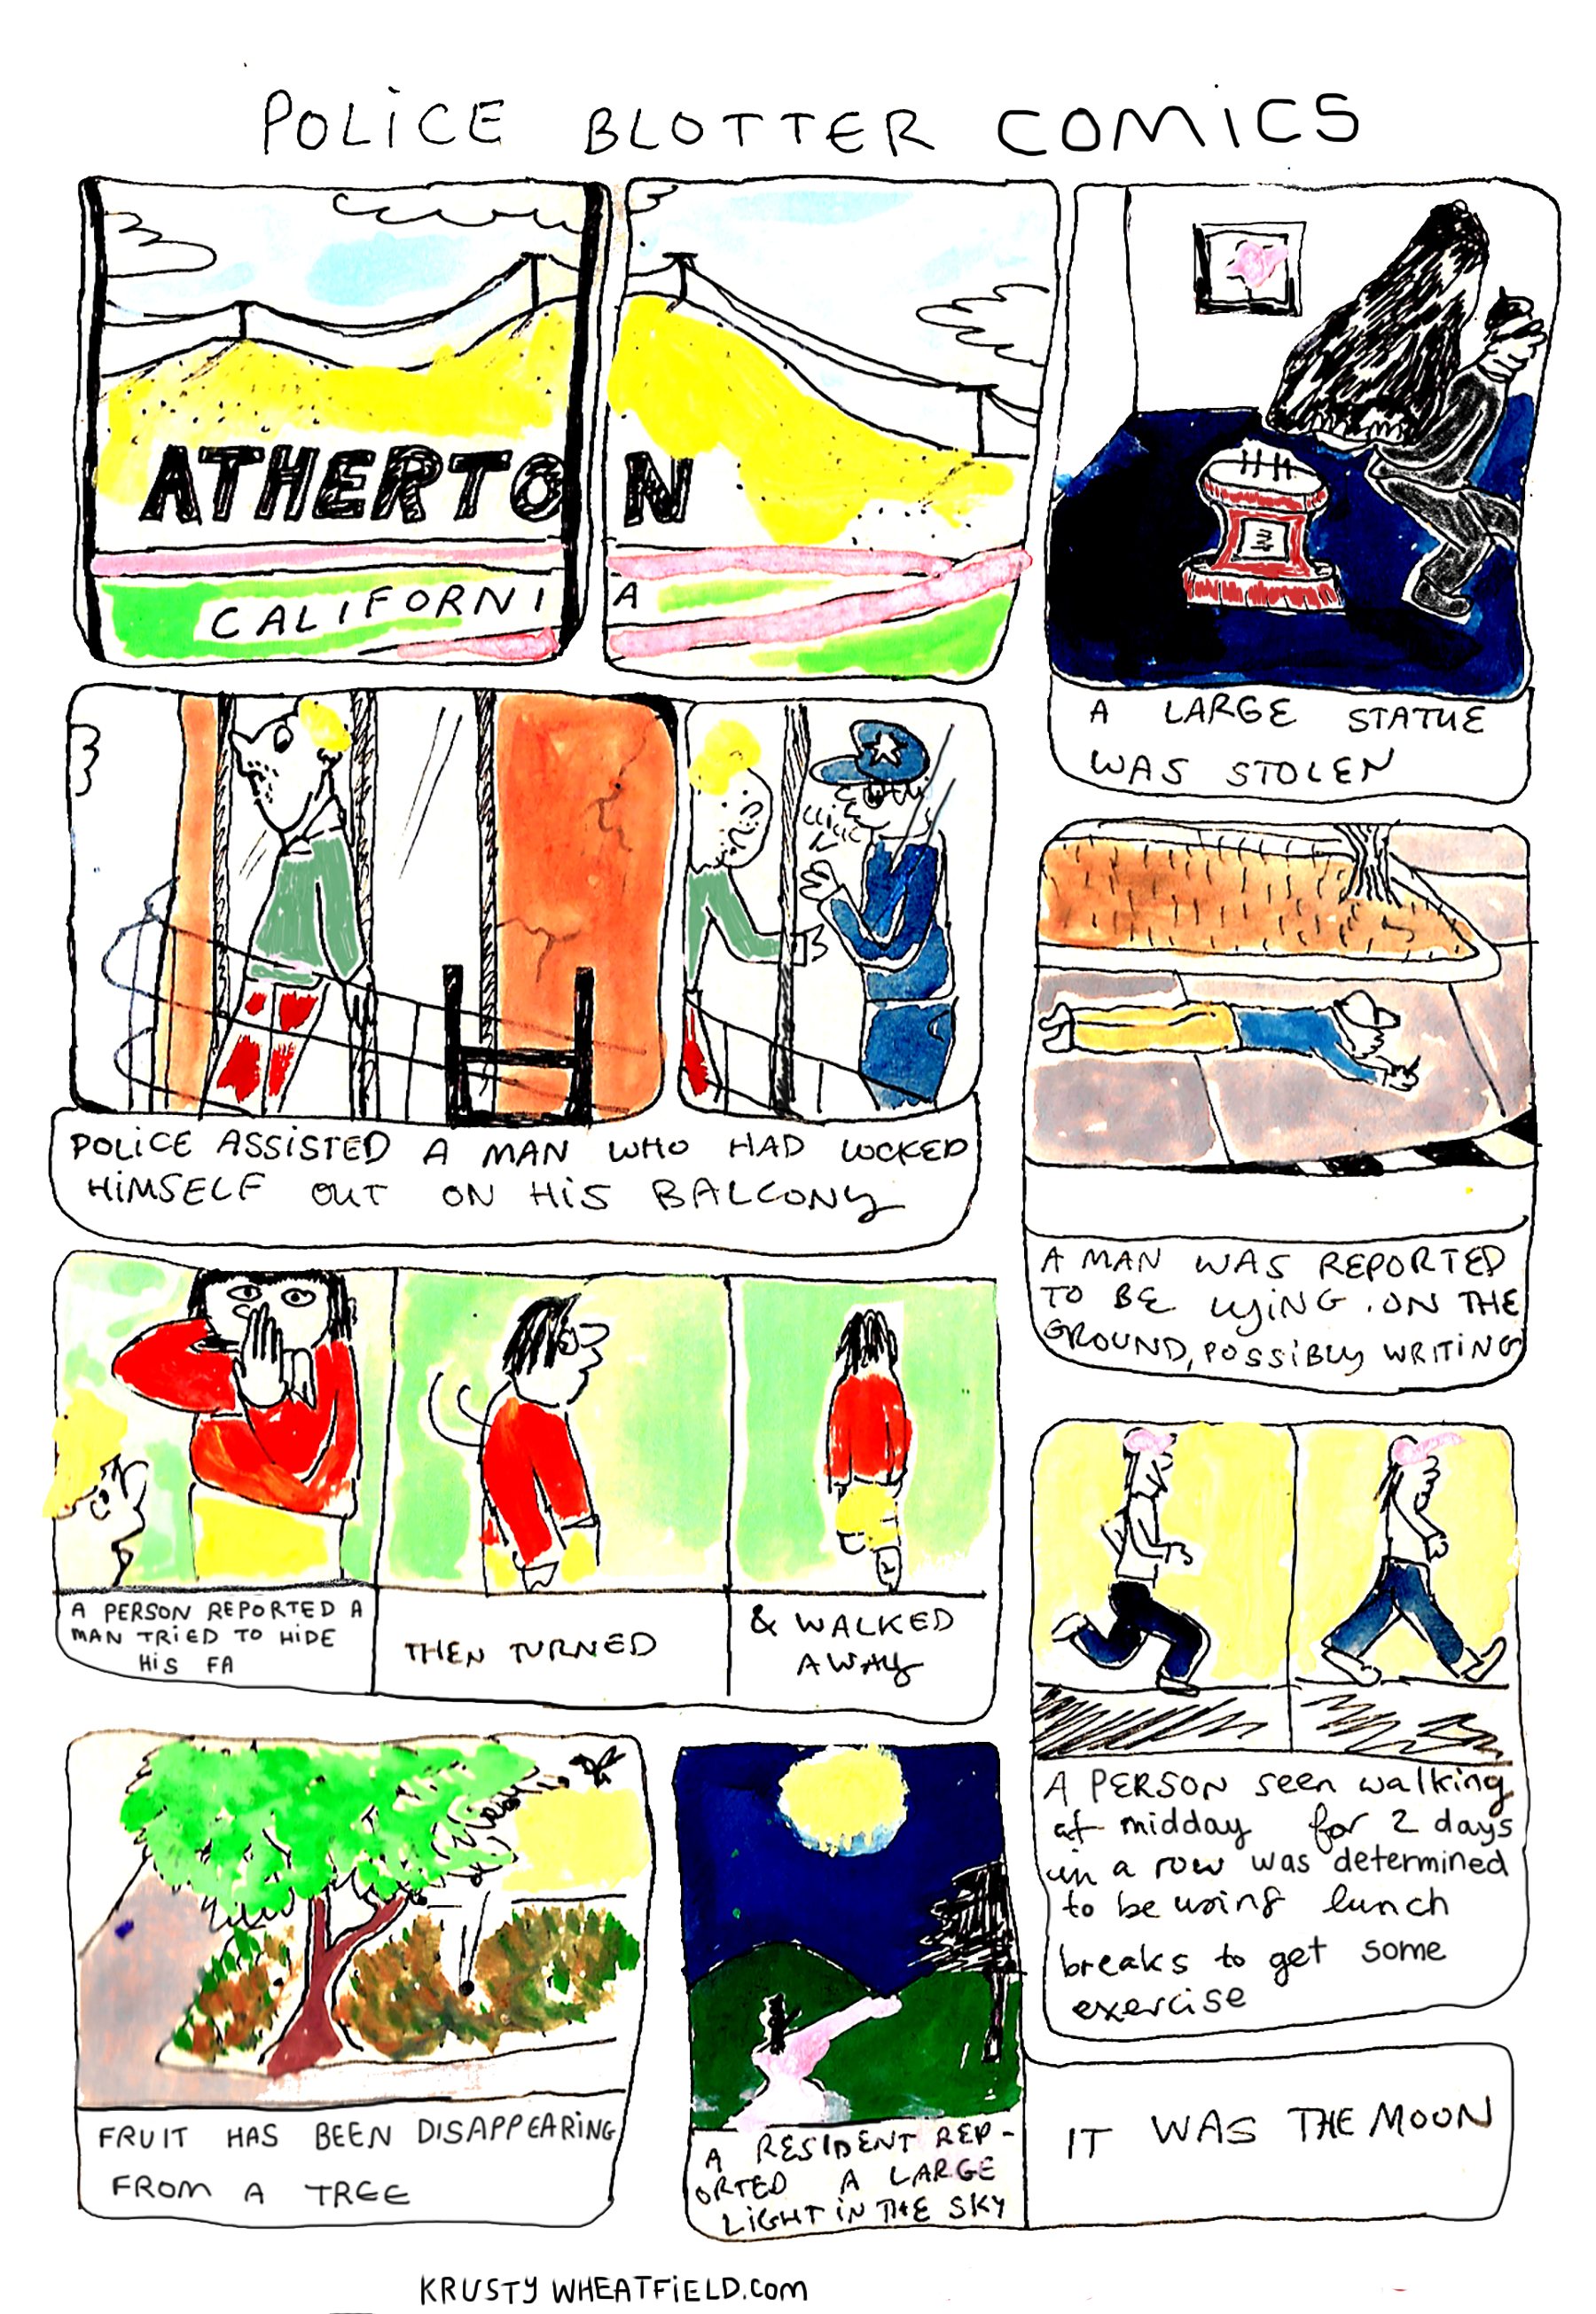 POLICE BLOTTER COMICS
ATHERTON
CALIFORNIA
A LARGE STATUE
WAS STOLEN
CLICK
POLICE ASSISTED A MAN WHO HAD LOCKED
HIMSELF OUT ON HIS BALCONY
A MAN WAS REPORTED
TO BE LYING ON THE
GROUND, POSSIBLY WRITING
A PERSON REPORTED A
MAN TRIED TO HIDE
HIS FA
THEN TURNED
& WALKED
AWAY
A PERSON seen walking
at midday for 2 days
in a row was determined
to be using lunch
breaks to get some
exercise
FRUIT HAS BEEN DISAPPEARING
FROM A TREE
A RESIDENT REP-
ORTED A LARGE
LIGHT IN THE SKY
IT WAS THE MOON
KRUSTY WHEATFIELD.COM